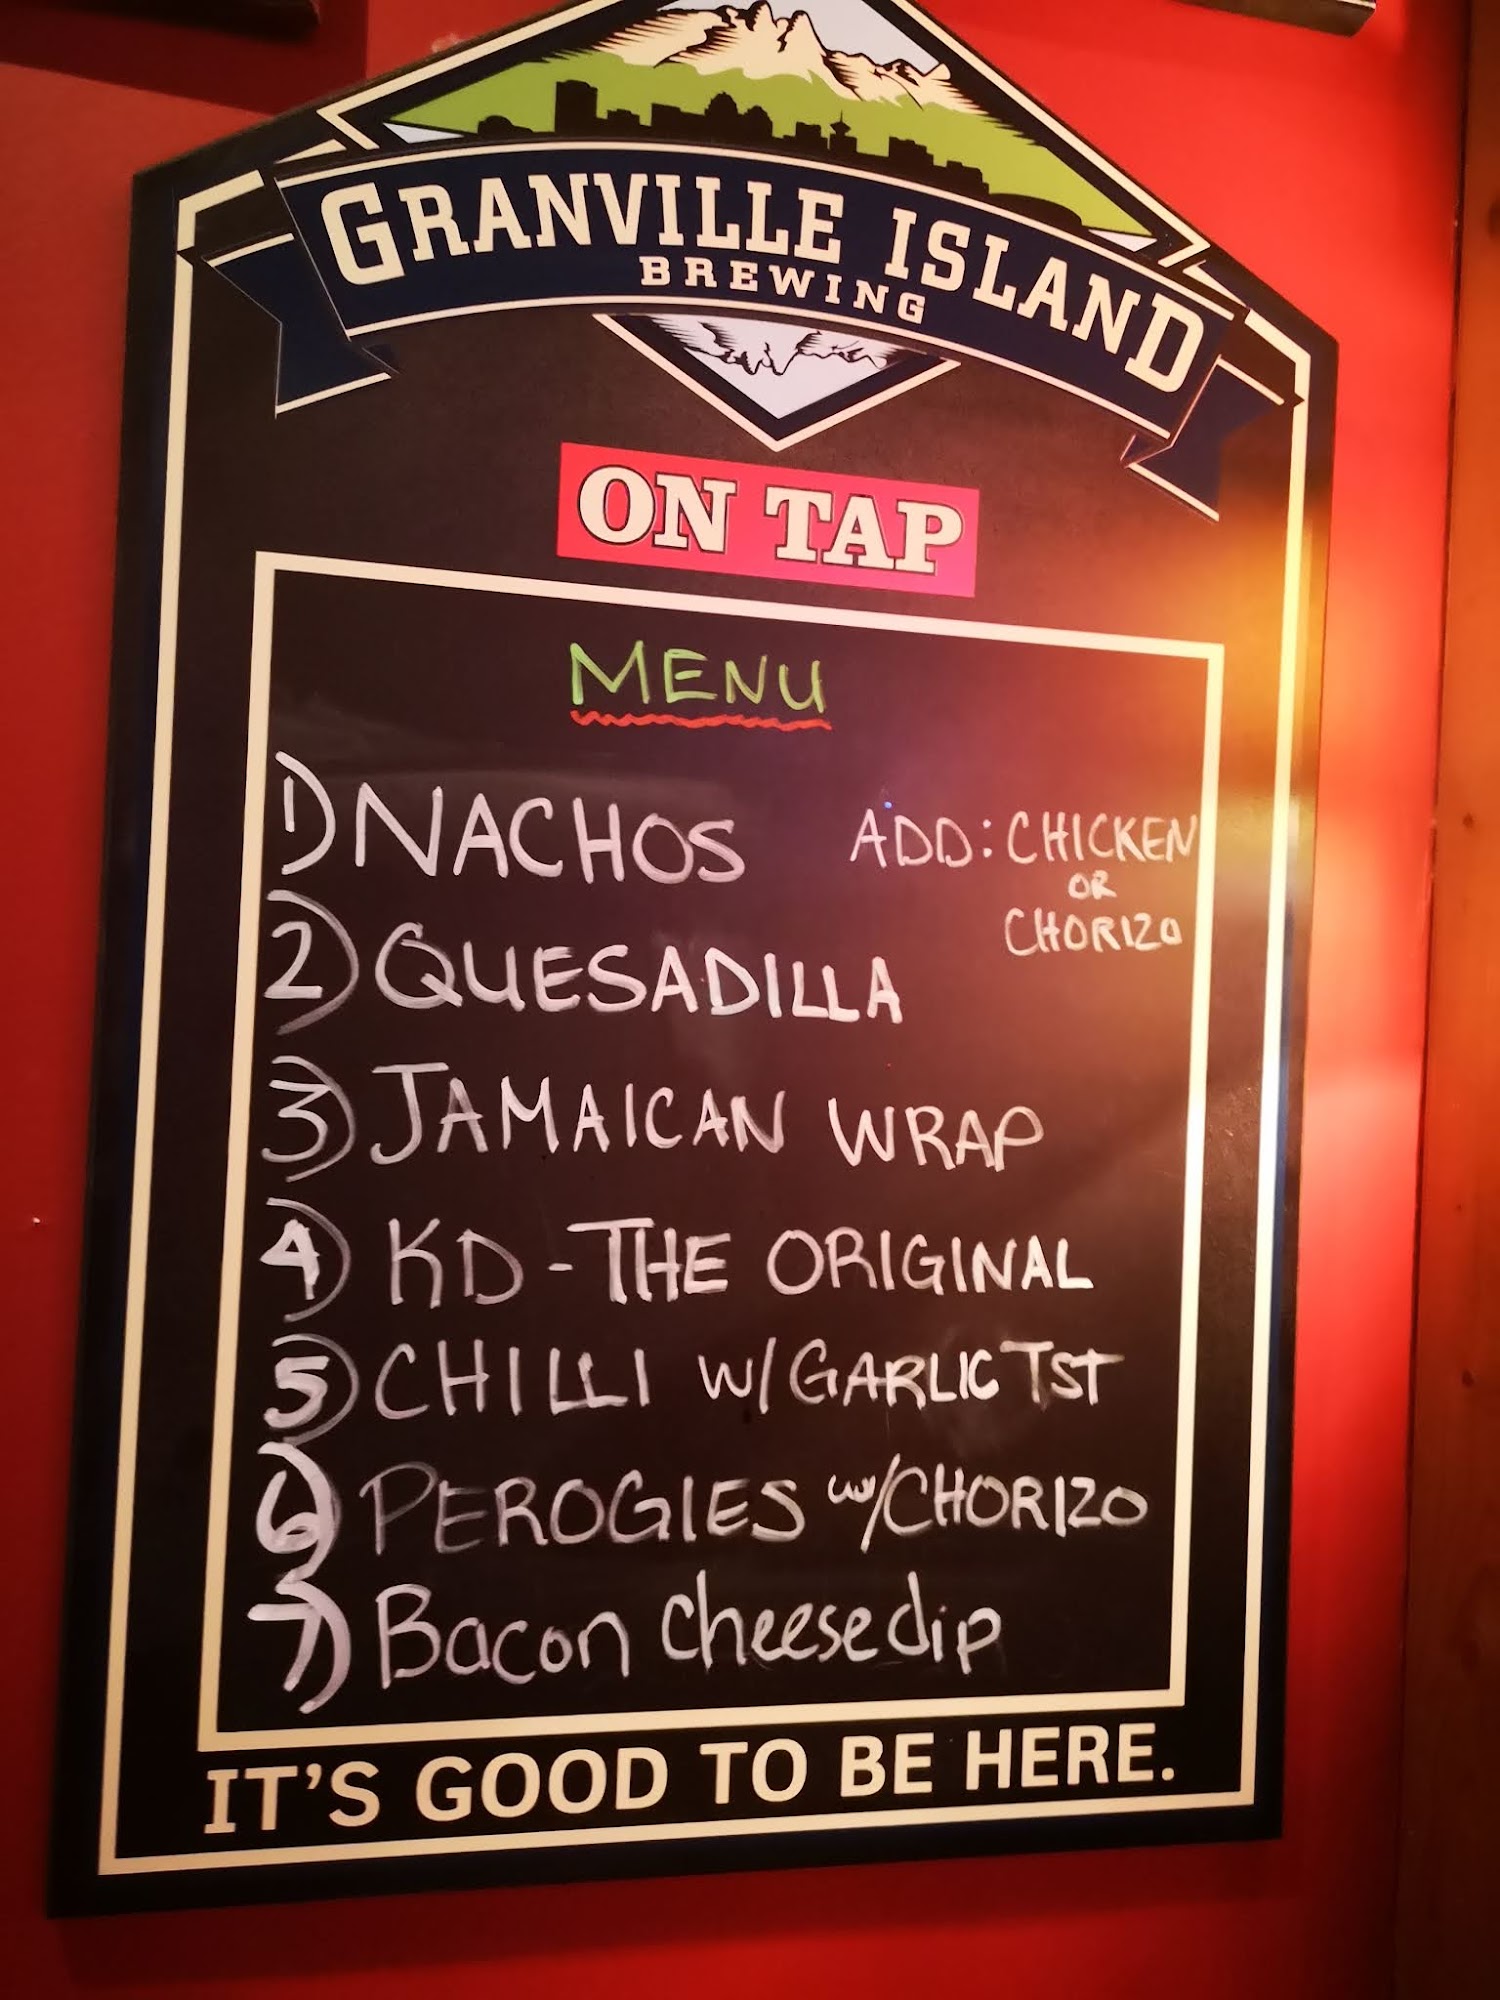 GRANVILLE ISLAND
BREWING
ON TAP
MENU
1) NACHOS ADD: CHICKEN
OR
CHORIZO
2) QUESADILLA
3) JAMAICAN WRAP
4) KD - THE ORIGINAL
5) CHILLI W/ GARLIC TST
6) PEROGIES W/ CHORIZO
7) Bacon cheese dip
IT'S GOOD TO BE HERE.